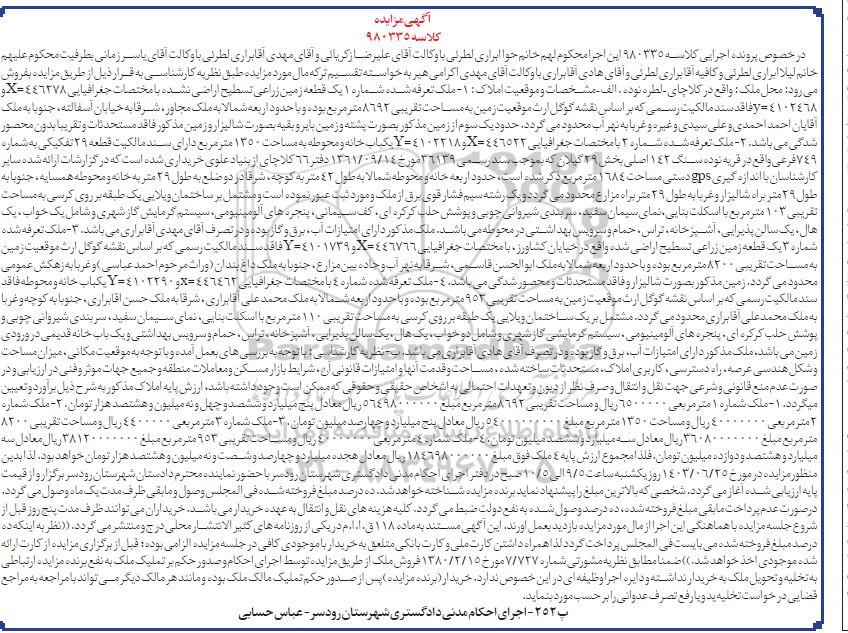 آگهی مزایده
کلاسه ۹۸۰۳۳۵
در خصوص پرونده اجرایی کلاسه ۹۸۰۳۳۵ این اجرا محکوم لهم خانم حوا ابراری لطرئی با وکالت آقای علیرضا زکریائی و آقای مهدی آقابراری لطرئی با وکالت آقای یاسر زمانی بطرفیت محکوم علیهم
خانم لیلا ابراری لطرئی و کافیه آقابراری لطرئی و آقای هادی آقابراری با وکالت آقای مهدی اکرامی هیر به خواسته تقسیم ترکه مال مورد مزایده طبق نظریه کارشناسی به قرار ذیل از طریق مزایده بفروش
می رود: محل ملک: واقع در کلاچای -لطره نوده . الف-مشخصات و موقعیت املاک: ۱- ملک تعرفه شده شماره ۱ یک قطعه زمین زراعی تسطیح اراضی نشده با مختصات جغرافیایی X=۴۴۶۲۷۸و
y=۴۱۰۲۴۶۸ فاقد سند مالکیت رسمی که بر اساس نقشه گوگل ارث موقعیت زمین به مساحت تقریبی ۸۶۹۲ متر مربع بوده و با حدود اربعه شمالا به ملک مجاور ، شرقا به خیابان آسفالته، جنوبا به ملک
آقایان احمد احمدی و علی سیدی و غیره و غربا به نهر آب محدود می گردد. حدود یک سوم از زمین مذکور بصورت پشته و زمین بایر و بقیه بصورت شالیزار و زمین مذکور فاقد مستحدثات و تقریبا بدون محصور
شدگی می باشد. ۲- ملک تعرفه شده شماره ۲ با مختصات جغرافیایی X=۴۴۶۵۲۲و Y=۴۱۰۲۲۱۸ یکباب خانه و محوطه به مساحت ۱۳۵۰ متر مربع دارای سند مالکیت قطعه ۲۹ تفکیکی به شماره
۷۴۹ فرعی واقع در قریه نوده سنگ ۱۴۲ اصلی بخش ۲۹ گیلان که بموجب سند رسمی ۳۶۱۳۹ مورخ ۱۳۶۱/۰۹/۱۴ دفتر ۶۶ کلاچای از بنیاد علوی خریداری شده است که در گزارشات ارائه شده سایر
کارشناسان با اندازه گیری gps دستی مساحت ۱۶۸۴ متر مربع ذکر شده است ، حدود اربعه خانه و محوطه شمالا به طول ۴۲ متر به کوچه، شرقا در دو ضلع به طول ۲۹ متر به خانه و محوطه همسایه، جنوبا به
طول ۲۹ متر به راه شالیزار و غربا به طول ۲۹ متر به راه مزارع محدود می گردد و یک رشته سیم فشار قوی برق از ملک و مورد ثبت عبور نموده است و مشتمل بر ساختمان ویلایی یک طبقه بر روی کرسی به مساحت
تقریبی ۱۰۳ متر مربع با اسکلت بنایی، نمای سیمان سفید، سربندی شیروانی چوبی و پوشش حلب کرکره ای، کف سیمانی، پنجره های آلومینیومی، سیستم گرمایش گاز شهری و شامل یک خواب، یک
هال، یک سالن پذیرایی، آشپزخانه، تراس، حمام و سرویس بهداشتی در محوطه می باشد. ملک مذکور دارای امتیازات آب، برق و گاز بوده و در تصرف آقای مهدی آقابراری می باشد. ۳- ملک تعرفه شده
شماره ۳ یک قطعه زمین زراعی تسطیح اراضی شده واقع در خیابان کشاورز ، با مختصات جغرافیایی X=۴۴۶۷۶۶و Y=۴۱۰۱۷۳۹ فاقد سند مالکیت رسمی که بر اساس نقشه گوگل ارث موقعیت زمین
به مساحت تقریبی ۸۲۰۰ متر مربع بوده و با حدود اربعه شمالا به ملک ابوالحسن قاسمی، شرقا به نهر آب و جاده بین مزارع، جنوبا به ملک داغ بندان (وراث مرحوم احمد عباسی) و غربا به زهکش عمومی
محدود می گردد. زمین مذکور بصورت شالیزار و فاقد مستحدثات و محصور شدگی می باشد. ۴- ملک تعرفه شده شماره ۴ با مختصات جغرافیایی x=۴۴۶۴۶۲و Y=۴۱۰۲۲۹۰ یکباب خانه و محوطه فاقد
سند مالکیت رسمی که بر اساس نقشه گوگل ارث موقعیت زمین به مساحت تقریبی ۹۵۳ متر مربع بوده و با حدود اربعه شمالا به ملک محمدعلی آقابراری ، شرقا به ملک حسن اقابراری، جنوبا به کوچه و غربا
به ملک محمدعلی آقابراری محدود می گردد. مشتمل بر یک ساختمان ویلایی یک طبقه بر روی کرسی به مساحت تقریبی ۱۱۰ متر مربع با اسکلت بنایی، نمای سیمان سفید، سربندی شیروانی چوبی و
پوشش حلب کرکره ای ، پنجره های آلومینیومی ، سیستم گرمایشی گاز شهری و شامل دو خواب، یک هال، یک سالن پذیرایی، آشپزخانه، تراس، حمام و سرویس بهداشتی و یک باب خانه قدیمی در ورودی
زمین می باشد. ملک مذکور دارای امتیازات آب، برق و گاز بوده و در تصرف آقای هادی آقابراری می باشد. ب- نظریه کارشناسی : با توجه به بررسی های بعمل آمده و با توجه به موقعیت مکانی ، میزان مساحت
و شکل هندسی عرصه، راه دسترسی، کاربری املاک، مستحدثات ساخته شده، مساحت و قدمت آنها و امتیازات قانونی آن، شرایط بازار مسکن و معاملات منطقه و جمیع جهات موثر و فنی در ارزیابی و در
صورت عدم منع قانونی و شرعی جهت نقل و انتقال و صرف نظر از دیون و تعهدات احتمالی به اشخاص حقیقی و حقوقی که ممکن است وجود داشته باشد، ارزش پایه املاک مذکور به شرح ذیل برآورد و تعیین
میگردد. ۱- ملک شماره ۱ متر مربعی ۶۵۰۰۰۰۰ ریال و مساحت تقریبی ۸۶۹۲ متر مربع مبلغ ۵۶۴۹۸۰۰۰۰۰۰ ریال معادل پنج میلیارد و ششصد و چهل و نه میلیون و هشتصد هزار تومان. ۲- ملک شماره
۲ متر مربعی ۴۰۰۰۰۰۰۰ ریال و مساحت ۱۳۵۰ متر مربع مبلغ ۵۴۰۰۰۰۰۰۰۰۰ ریال معادل پنج میلیارد و چهارصد میلیون تومان. ۳- ملک شماره ۳ متر مربعی ۴۴۰۰۰۰۰ ریال و مساحت تقریبی ۸۲۰۰
متر مربع مبلغ ۳۶۰۸۰۰۰۰۰۰۰ ریال معادل سه میلیارد و ششصد میلیون تومان. ۴- ملک شماره ۴ متر مربعی ۴۰۰۰۰۰۰۰ ریال و مساحت تقریبی ۹۵۳ متر مربع مبلغ ۳۸۱۲۰۰۰۰۰۰۰ ریال معادل سه
میلیارد و هشتصد و دوازده میلیون تومان. فلذا مجموع ارزش پایه ۴ ملک فوق مبلغ ۱۸۴۶۹۸۰۰۰۰۰۰ ریال معادل هجده میلیارد و چهارصد و شصت و نه میلیون و هشتصد هزار تومان خواهد بود. لذا بدین
منظور مزایده در مورخ ۱۴۰۳/۰۶/۲۵ روز یکشنبه ساعت ۹/۵ الی ۱۰/۵ صبح در دفتر اجرای احکام مدنی دادگستری شهرستان رودسر با حضور نماینده محترم دادستان شهرستان رودسر برگزار و از قیمت
پایه ارزیابی شده آغاز می گردد. شخصی که بالاترین مبلغ را پیشنهاد نماید برنده مزایده شناخته خواهد شد. ده درصد مبلغ فروخته شده فی المجلس وصول و مابقی ظرف مدت یک ماه وصول می گردد.
در صورت عدم پرداخت مابقی مبلغ فروخته شده، ده درصد وصول شده به نفع دولت ضبط می گردد. کلیه هزینه های نقل و انتقال به عهده خریدار می باشد. خریداران می توانند ظرف مدت پنج روز قبل از
شروع جلسه مزایده با هماهنگی این اجرا از مال مورد مزایده بازدید بعمل آورند. این آگهی مستند به ماده ۱۱۸ ق.ا.ا.م در یکی از روزنامه های کثیر الانتشار محلی درج و منتشر می گردد. ((نظر به اینکه ده
درصد مبلغ فروخته شده می بایست فی المجلس پرداخت گردد لذا همراه داشتن کارت ملی و کارت بانکی متعلق به خریدار با موجودی کافی در جلسه مزایده الزامی بوده؛ قبل از برگزاری مزایده از کارت ارائه
شده موجودی اخذ خواهد شد.)) ضمنا مطابق نظریه مشورتی شماره ۷/۷۲۷ مورخ ۱۳۸۰/۲/۱۵ فروش ملک از طریق مزایده توسط اجرای احکام و صدور حکم بر تملیک ملک به نفع برنده مزایده ارتباطی
به تخلیه و تحویل ملک به خریدار نداشته و دایره اجرا وظیفه ای در این خصوص ندارد. خریدار (برنده مزایده) پس از صدور حکم تملیک مالک ملک بوده و مانند هر مالک دیگر می تواند با مراجعه به مراجع
قضایی درخواست تخلیه ید و یا رفع تصرف عدوانی را بر حسب مورد بنماید.
پ۲۵۲ - اجرای احکام مدنی دادگستری شهرستان رودسر - عباس حسابی